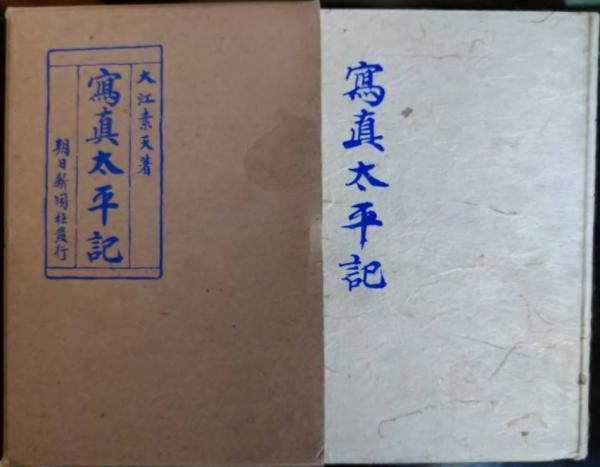 大江素天著
寫真太平記
朝日新聞社發行
寫真太平記